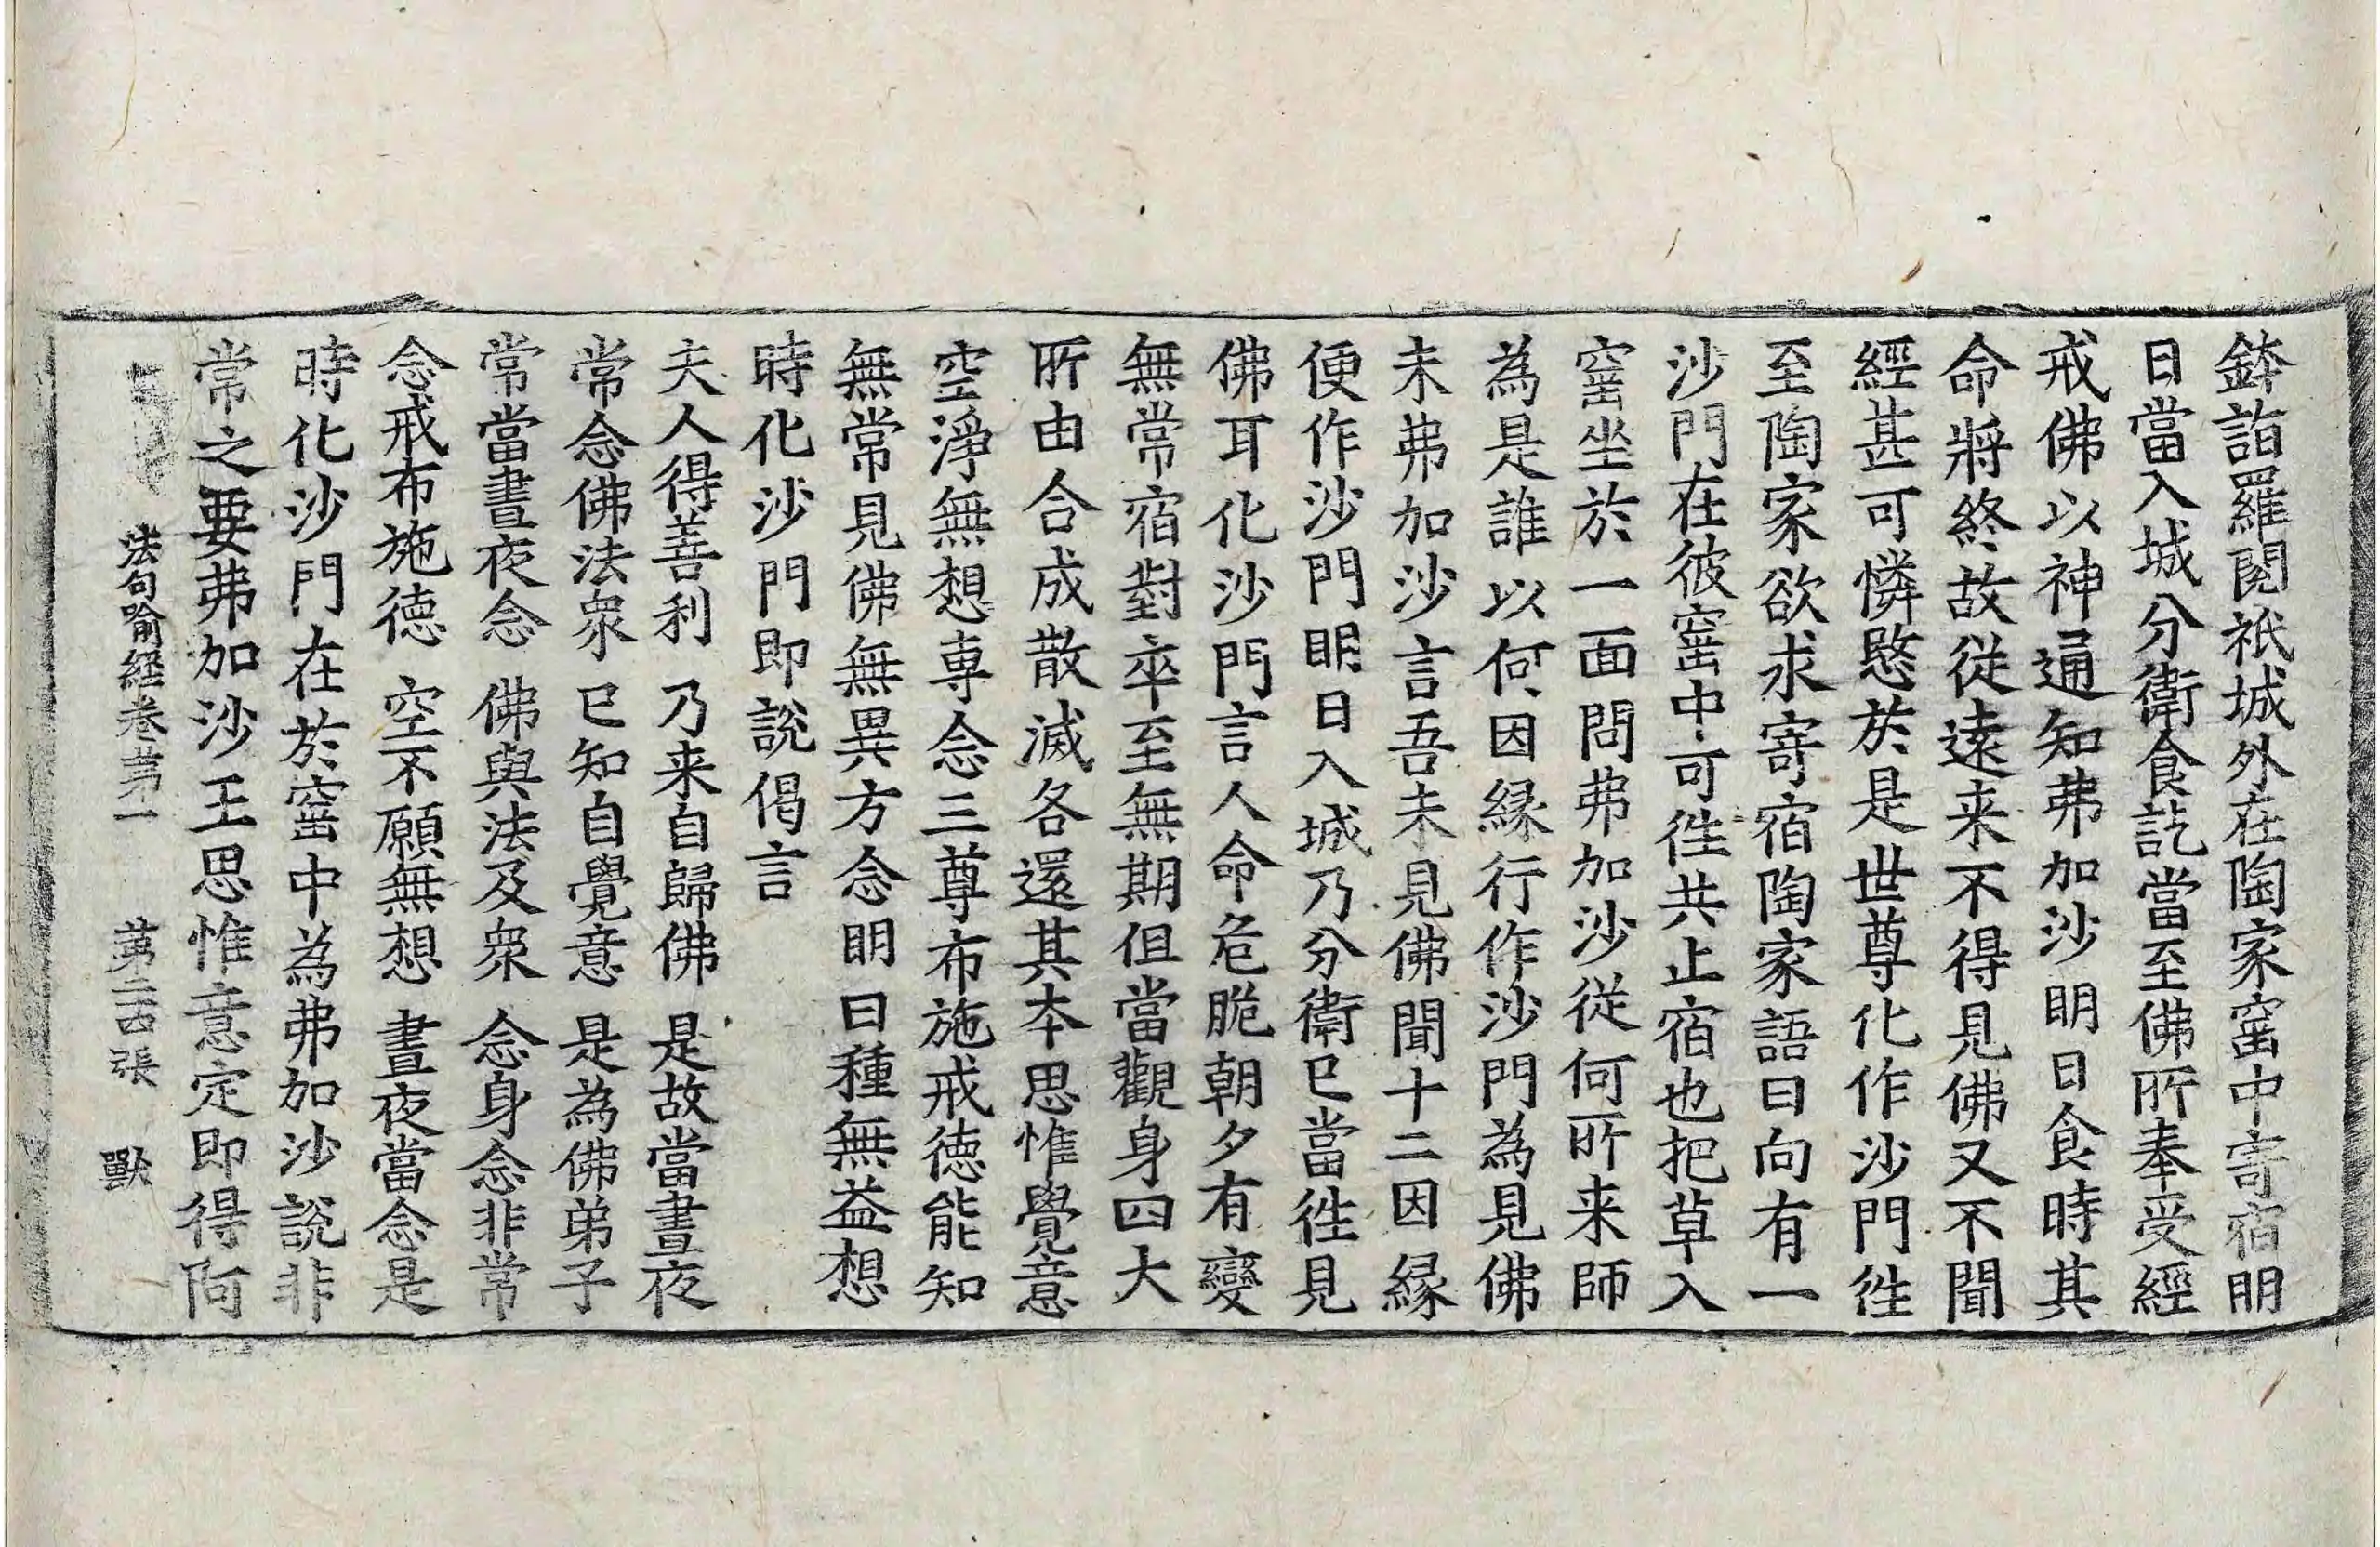 鉢詣羅閱祇城外在陶家窑中寄宿明
日當入城分衛食訖當至佛所奉受經
戒佛以神通知弗加沙明日食時其
命將終故從遠来不得見佛又不聞
經甚可憐愍於是世尊化作沙門徃
至陶家欲求寄宿陶家語曰向有一
沙門在彼窑中可徃共止宿也把草入
窑坐於一面問弗加沙從何所来師
為是誰以何因縁行作沙門為見佛
未弗加沙言吾未見佛聞十二因縁
便作沙門明日入城乃分衛已當徃見
佛耳化沙門言人命危脆朝夕有變
無常宿對卒至無期但當觀身四大
所由合成散滅各還其本思惟覺意
空淨無想專念三尊布施戒徳能知
無常見佛無異方念明日種無益想
時化沙門即說偈言
夫人得善利 乃来自歸佛 是故當晝夜
常念佛法衆 已知自覺意 是為佛弟子
常當晝夜念 佛與法及衆 念身念非常
念戒布施德 空不願無想 晝夜當念是
時化沙門在於窑中為弗加沙說非
常之要弗加沙王思惟意定即得阿
法句喻経卷苐一 苐二四張 獸